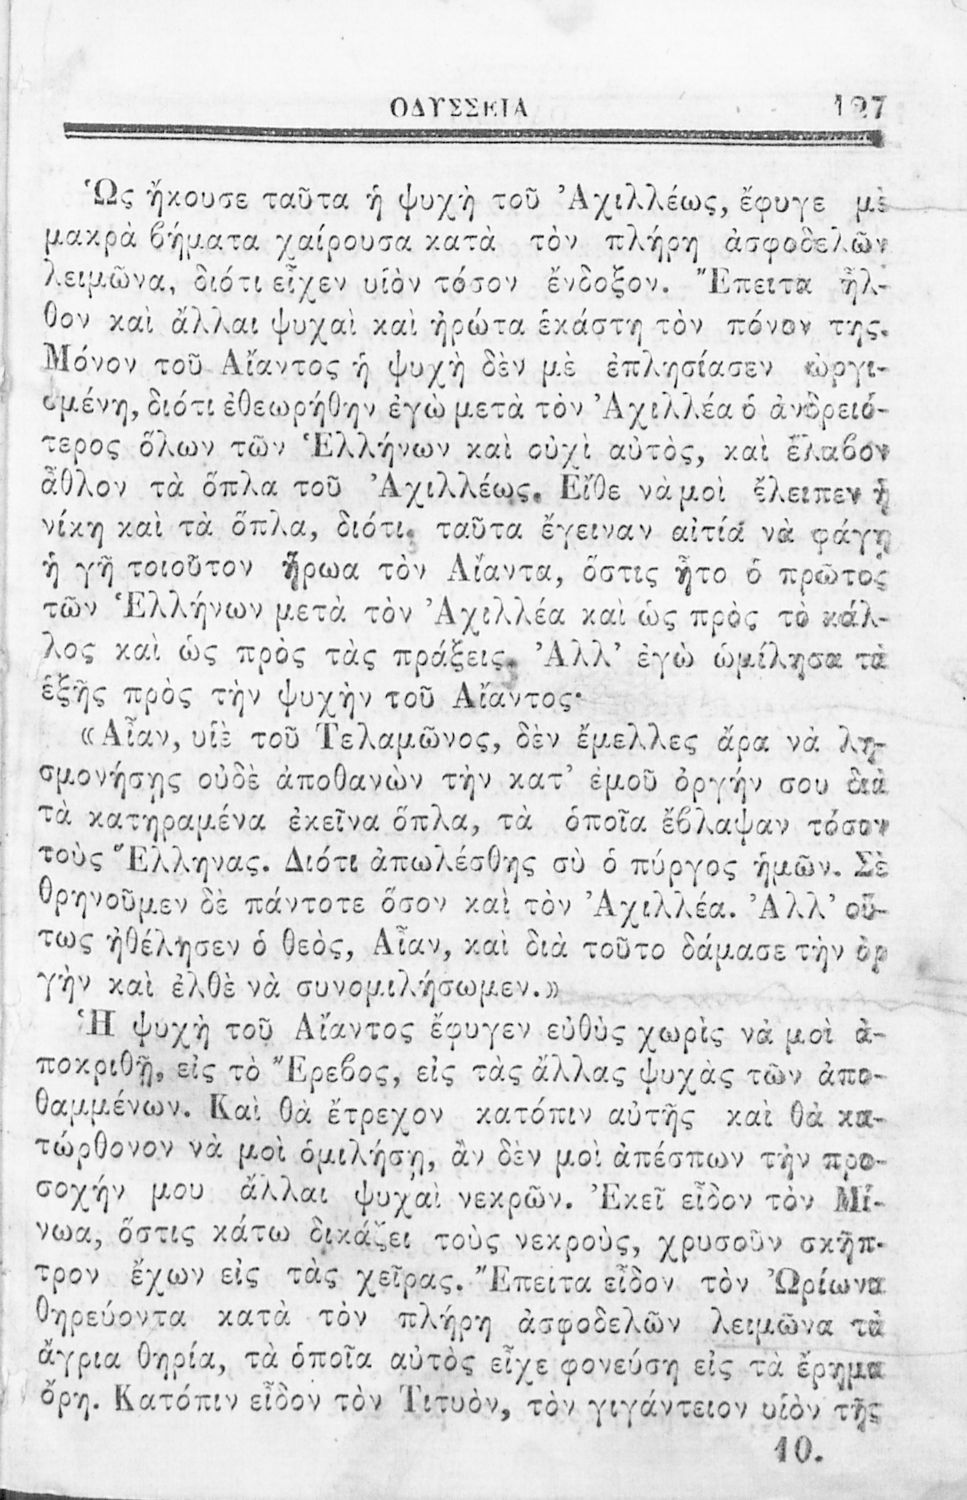 ΟΔΥΣΣΕΙΑ 127
Ὡς ἤκουσε ταῦτα ἡ ψυχὴ τοῦ Ἀχιλλέως, ἔφυγε μὲ
μακρὰ βήματα χαίρουσα κατὰ τὸν πλήρη ἀσφοδελῶν
λειμῶνα, διότι εἶχεν υἱὸν τόσον ἔνδοξον. Ἔπειτα ἦλ-
θον καὶ ἄλλαι ψυχαὶ καὶ ἠρώτα ἑκάστη τὸν πόνον της.
Μόνον τοῦ Αἴαντος ἡ ψυχὴ δὲν μὲ ἐπλησίασεν ὠργι-
σμένη, διότι ἐθεωρήθην ἐγὼ μετὰ τὸν Ἀχιλλέα ὁ ἀνδρειό-
τερος ὅλων τῶν Ἑλλήνων καὶ οὐχὶ αὐτὸς, καὶ ἔλαβον
ἆθλον τὰ ὅπλα τοῦ Ἀχιλλέως. Εἴθε νὰ μοὶ ἔλειπεν ἡ
νίκη καὶ τὰ ὅπλα, διότι. ταῦτα ἔγειναν αἰτία νὰ φάγῃ
ἡ γῆ τοιοῦτον ἥρωα τὸν Αἴαντα, ὅστις ἦτο ὁ πρῶτος
τῶν Ἑλλήνων μετὰ τὸν Ἀχιλλέα καὶ ὡς πρὸς τὸ κάλ-
λος καὶ ὡς πρὸς τὰς πράξεις. Ἀλλ’ ἐγὼ ὡμίλησα τὰ
ἑξῆς πρὸς τὴν ψυχὴν τοῦ Αἴαντος·
«Αἶαν, υἱὲ τοῦ Τελαμῶνος, δὲν ἔμελλες ἄρα νὰ λη-
σμονήσῃς οὐδὲ ἀποθανὼν τὴν κατ’ ἐμοῦ ὀργήν σου διὰ
τὰ κατηραμένα ἐκεῖνα ὅπλα, τὰ ὁποῖα ἔβλαψαν τόσον
τοὺς Ἕλληνας. Διότι ἀπωλέσθης σὺ ὁ πύργος ἡμῶν. Σὲ
θρηνοῦμεν δὲ πάντοτε ὅσον καὶ τὸν Ἀχιλλέα. Ἀλλ’ οὕ-
τως ἠθέλησεν ὁ θεὸς, Αἶαν, καὶ διὰ τοῦτο δάμασε τὴν ὀρ
γὴν καὶ ἐλθὲ νὰ συνομιλήσωμεν.»
Ἡ ψυχὴ τοῦ Αἴαντος ἔφυγεν εὐθὺς χωρὶς νὰ μοὶ ἀ-
ποκριθῇ, εἰς τὸ Ἔρεβος, εἰς τὰς ἄλλας ψυχὰς τῶν ἀπο-
θαμμένων. Καὶ θὰ ἔτρεχον κατόπιν αὐτῆς καὶ θὰ κα-
τώρθονον νὰ μοὶ ὁμιλήσῃ, ἂν δὲν μοὶ ἀπέσπων τὴν προ-
σοχήν μου ἄλλαι ψυχαὶ νεκρῶν. Ἐκεῖ εἶδον τὸν Μί-
νωα, ὅστις κάτω δικάζει τοὺς νεκροὺς, χρυσοῦν σκῆπ-
τρον ἔχων εἰς τὰς χεῖρας. Ἔπειτα εἶδον τὸν Ὠρίωνα
θηρεύοντα κατὰ τὸν πλήρη ἀσφοδελῶν λειμῶνα τὰ
ἄγρια θηρία, τὰ ὁποῖα αὐτὸς εἶχε φονεύσῃ εἰς τὰ ἔρημα
ὄρη. Κατόπιν εἶδον τὸν Τιτυὸν, τὸν γιγάντειον υἱὸν τῆς
10.